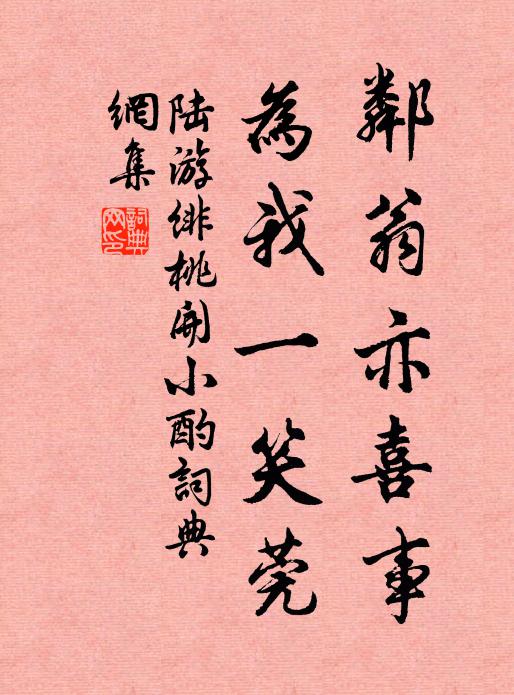 鄰翁亦喜事
為我一笑莞
陆游緋桃開小酌詞典
網集
詞典網印